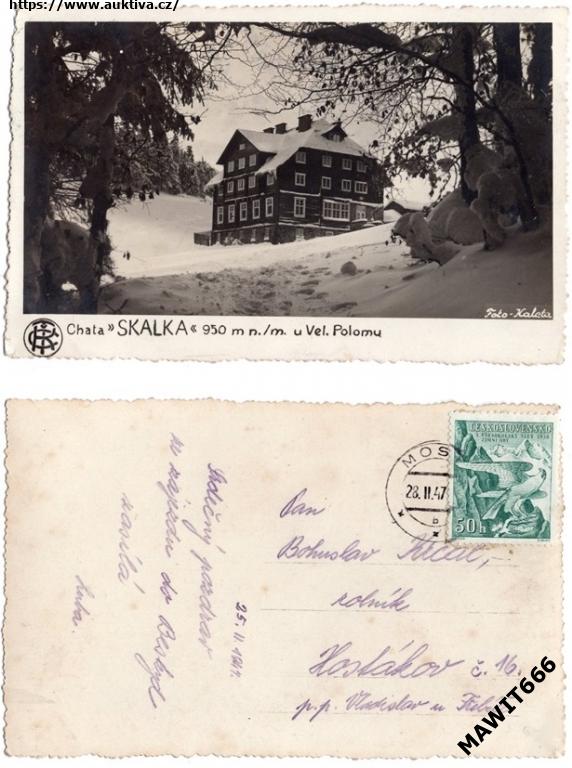 https://www.auktiva.cz/
Foto-Kaleta
Chata »SKALKA« 950 m n./m. u Vel. Polomu
ČESKOSLOVENSKO
50h
MOS
28.II.47
b
Srdečný pozdrav
ze zájezdu do Beskyd
zasílá
25.II.1947.
Pan
Bohuslav
rolník
Hostákov č. 16.
p.p. Vladislav u
MAWIT666